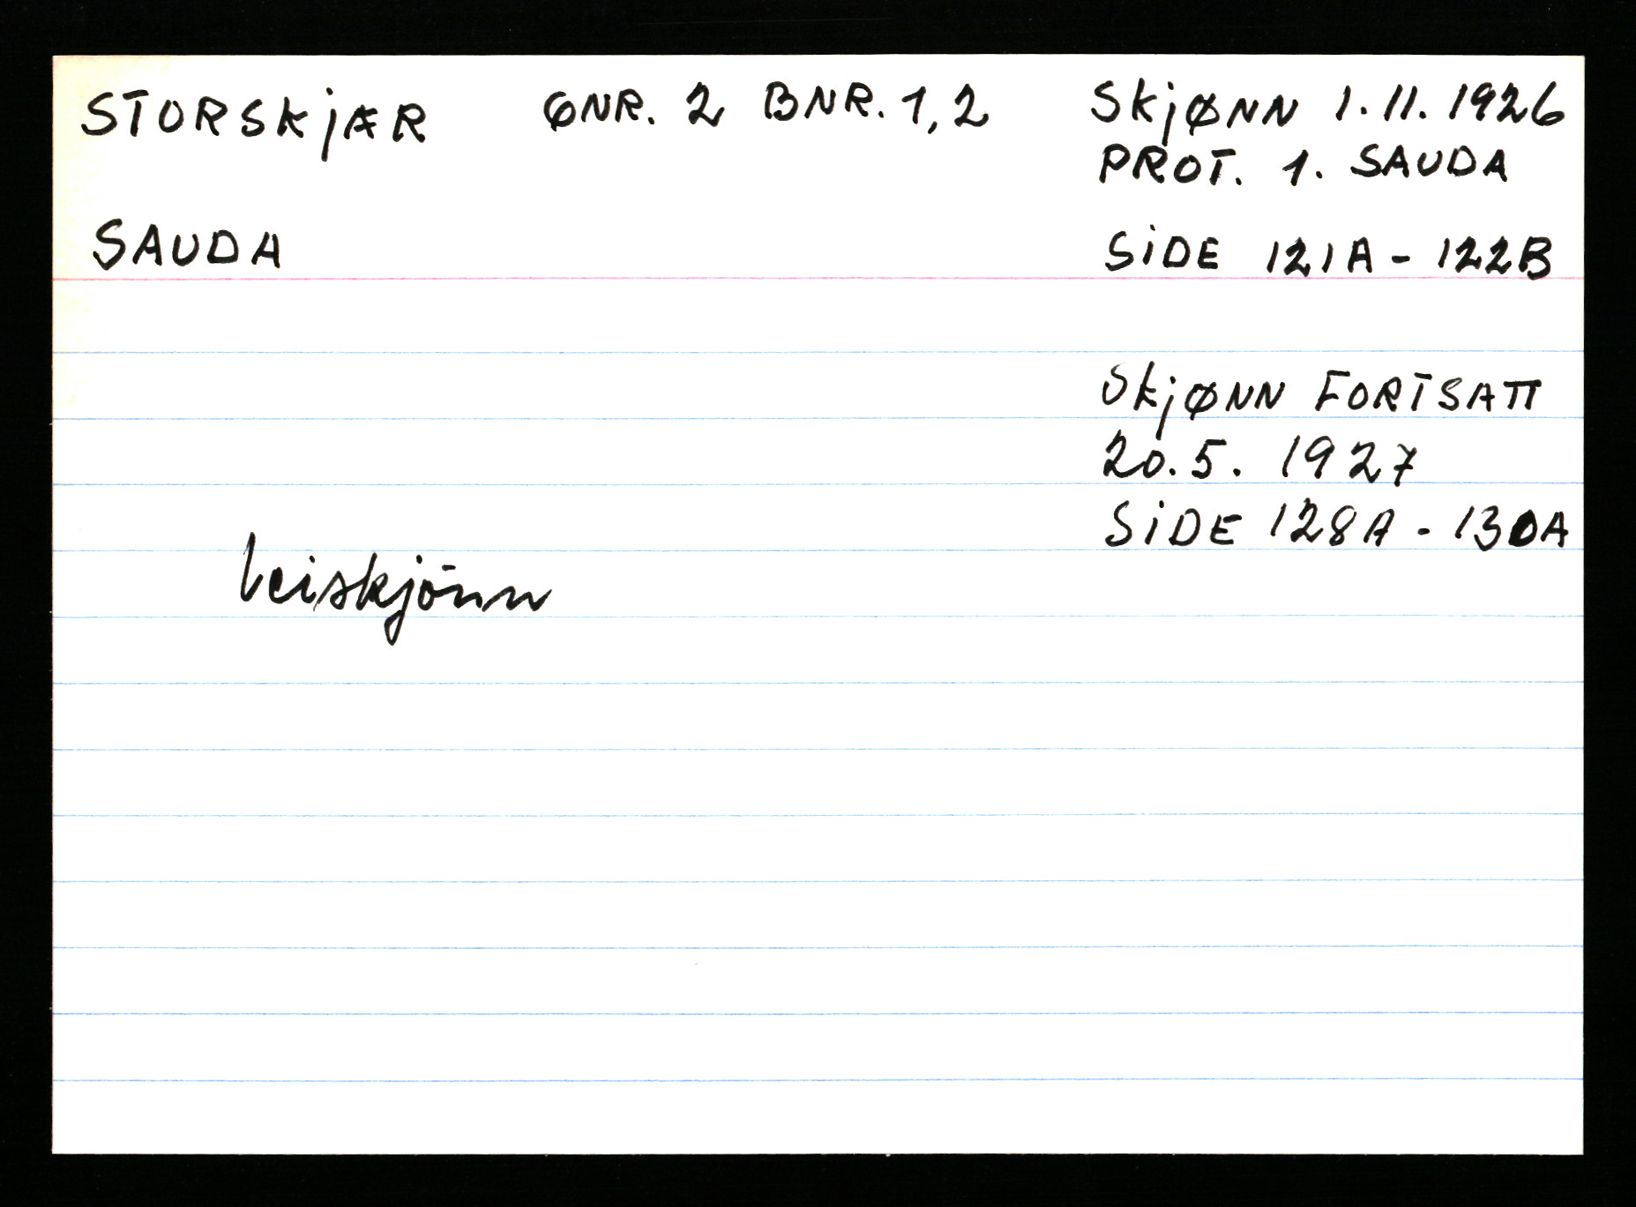 STORSKjÆR GNR. 2 BNR. 1,2 SkjØNN 1.11.1926
PROT. 1. SAUDA
SAUDA SiDE 121A - 122B
SkjØNN FORTSATT
20.5. 1927
SiDE 128A - 130A
Veiskjönn